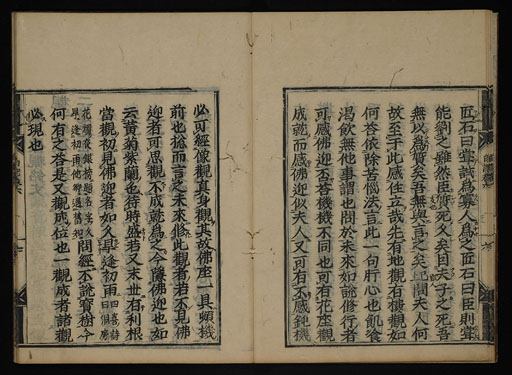 匠石曰嘗試為寡人為之匠石曰臣則嘗
能劉之雖然臣質死久矣自夫子之死吾
無以為質矣吾無與言之矣問夫人何
故至于此感住立哉先有地觀有樓觀如
何答依除苦惱法言此一句肝心也飢食
渇飲無他事謂也問於未來如說修行者
可感佛迎不答機機不同也可有花座觀
成就而感佛迎似夫人又可有不感鈍機
必可經像觀真身觀其故佛座一具頻機
前也捴而言之未來修此觀者若不見佛
迎者可思觀不成就為之今蔭佛迎也如
云黄菊紫蘭也待時盛若又末世有利根
當觀初見佛迎者如久早逢初雨
問經不說寶樹今
何有之答是又觀成位也一觀成者諸觀
必現也